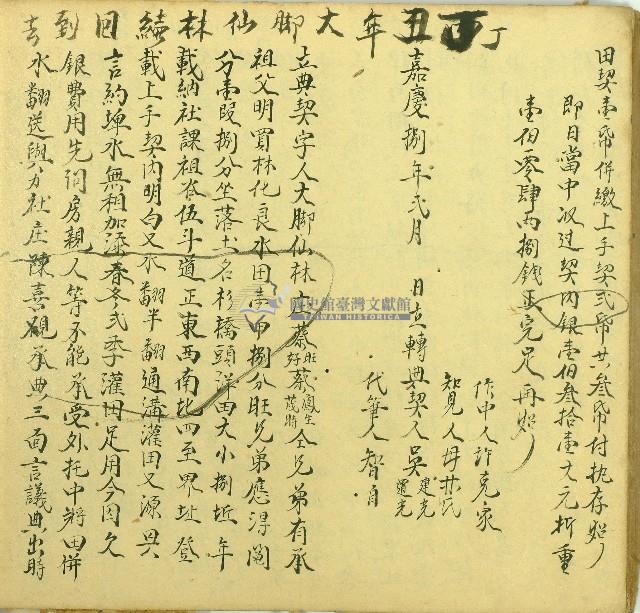 田契壹帋併繳上手契弍帋共叁帋付执存炤
即日當中汲过契內銀壹伯叁拾壹大元折重
壹伯零肆兩捌錢正完足再炤
作中人許克家
知見人母林氏
嘉慶捌年弍月 日立轉典契人吳建光
代筆人智自
丁丁丑年大脚仙林續回到去
立典契字人大脚仙林庄蔡旺好蔡鳳生茂時仝兄弟有承
祖父明買林化良水田捌分旺兄弟應得鬮
分壹段捌分坐落土名杉橋頭洋田大小捌坵年
載納社課租谷伍斗道正東西南北四至界址登
載上手契內明白又水翻半翻通溝灌田又源與
言約埤水無相加添春冬弍季灌田足用今因欠
銀費用先問房親人等不能承受外托中將田併
水翻送與方社庄陳喜觀承典三面言議典出時
國史館臺灣文獻館
TAIWAN HISTORICA